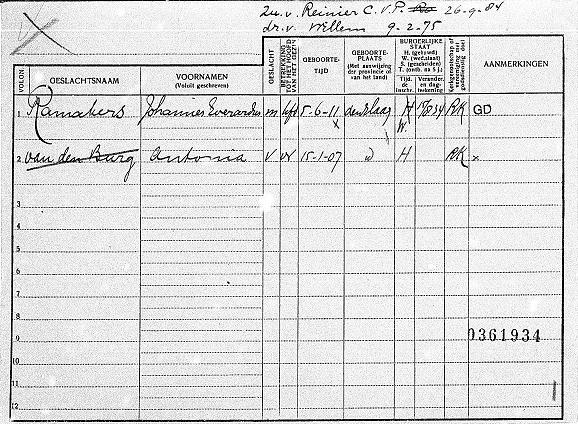 zn. v. Reinier C. v. P. 26-9-84
dr. v. Willem 9-2-75
VOLGN.
GESLACHTSNAAM
VOORNAMEN
(Voluit geschreven)
GESLACHT
BETREKKING TOT HET HOOFD VAN HET GEZIN
GEBOORTE-
TIJD
GEBOORTE-
PLAATS
(Met aanwijzing der provincie of van het land)
BURGERLIJKE STAAT
H. (gehuwd)
W. (wed.staat)
S. (gescheiden)
T. (ontb. na 5 j.)
Tijd. de inschr.
Verander. en dag-teekening
Kerkgenootschap of vereeniging met godsdienstig doel
AANMERKINGEN
1 Ramakers Johannes Everardus m hfd 5-6-11 den Haag H RK GD
x W.
2 van den Burg Antonia V vr 15-1-07 id H RK x
3
4
5
6
7
8
0361934
9
10
11
12